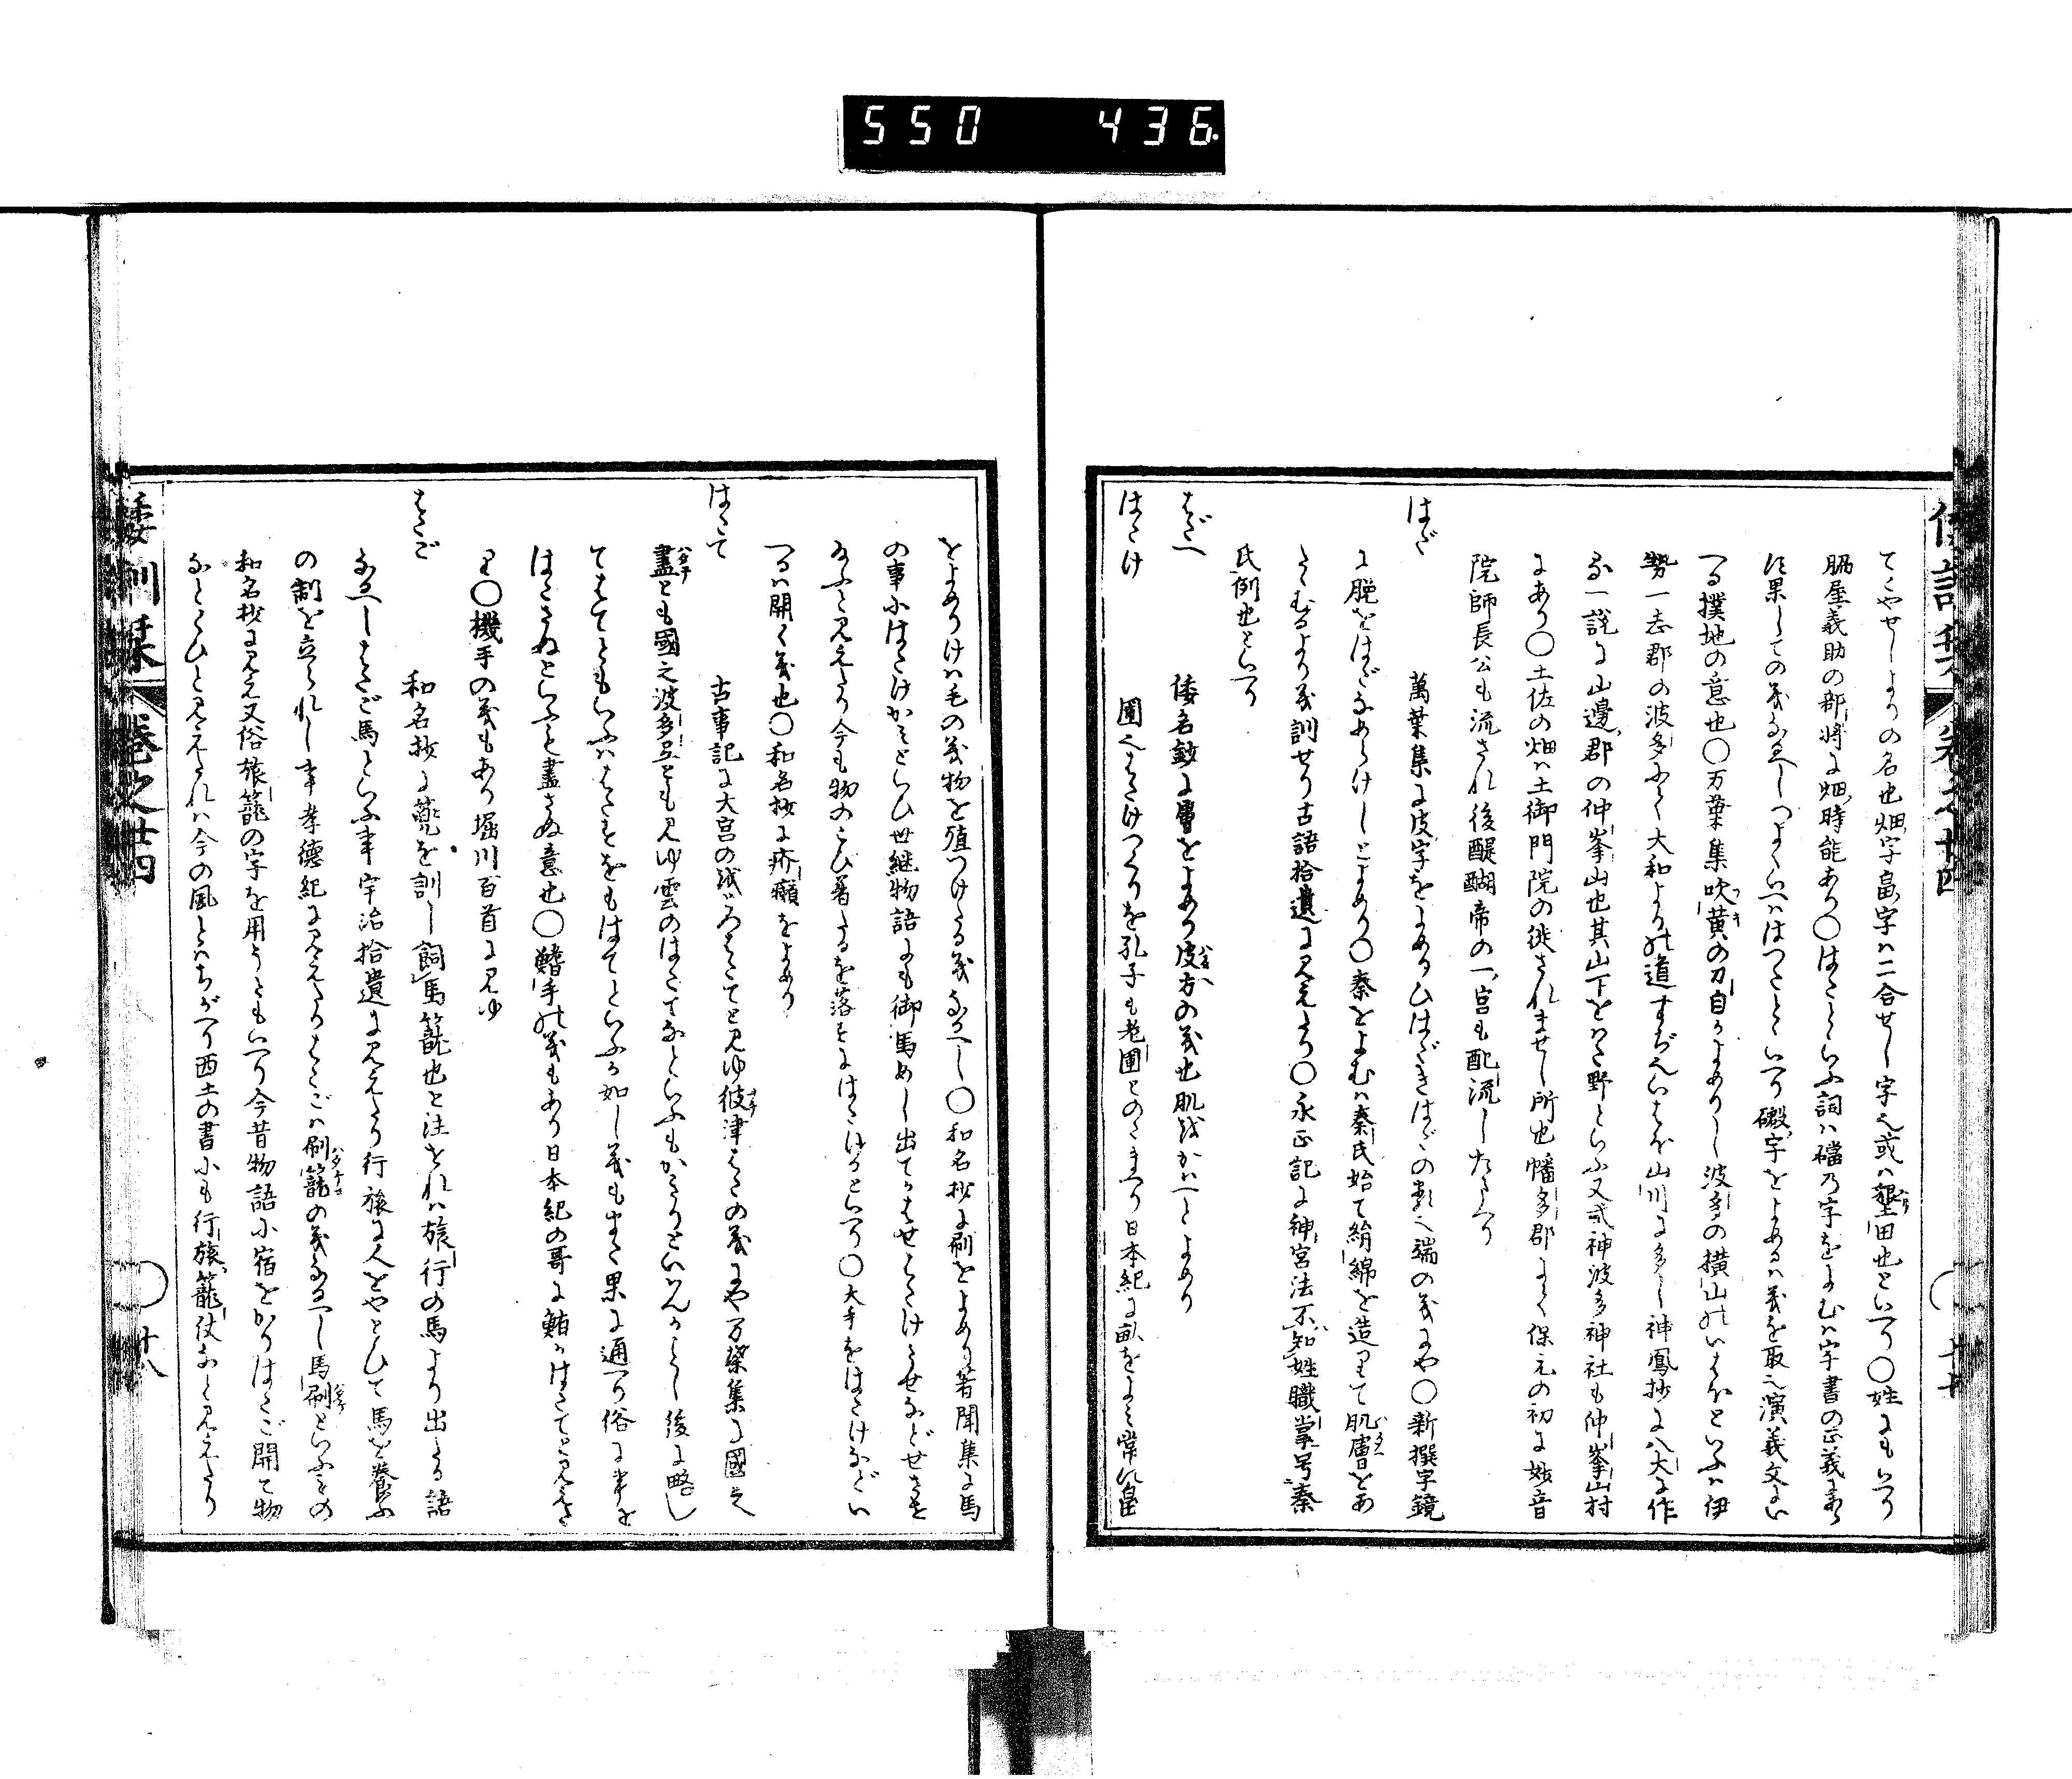 550 436
てこやせしよりの名也畑字畠字ハ二合せし字也或ハ墾田也といへり〇姓にもいへり
脇屋義助の部将に畑時能あり〇はたといふ詞ハ襠乃字をよむハ字書の正義あり
は果しての義なるへしつよくいへはつたといへり礑字をよめるハ義を取之演義文にい
へる撲地の意也〇万葉集吹黄の刀自かよめりし波多の横山のいはほといふハ伊
勢一志郡の波多にて大和よりの道すぢにいはほ山川に多し神鳳抄に八太に作
る一説に山邊郡の仲峯山也其山下をはた野といふ又弐神波多神社も仲峯山村
にあり〇土佐の畑ハ土御門院の徙されませし所也幡多郡にて保元の初に妙音
院師長公も流され後醍醐帝の一宮も配流したまへり
はだ 萬葉集に皮字をよめるひはだきはだの類也端の義にや〇新撰字鏡
に脱をはだなあらけしとよめり〇秦をよむハ秦氏始て絹綿を造りて肌膚をあ
たゝむるより義訓せり古語拾遺に見えたり〇永正記に神宮法不知姓職掌号秦
氏例也といへり
はだへ 倭名鈔に膚をよめり皮方の義也肌或かハへとよめり
はたけ 圃也はたけつくりを孔子も老圃とのたまへり日本紀に畝をよみ常に畠
をよめりけハ毛の義物を殖つけたる義なるへし〇和名抄に刷をよめり著聞集に馬
の事にはたけかみといひ世継物語にも御馬めし出てはせはたけさせなどせさせ
給ふと見えたり今も物のこび着たるを落すにはたけるといへり〇大手をはたけなどい
へるハ開く義也〇和名抄に疥癩をよめり
はたて 古事記に大宮の彼つはたてと見ゆ彼津はたの義にや万葉集に國之
盡とも國之波多弖とも見ゆ雲のはたてなといふもかきりといはんかことし後に略し
てはてともいふハはたすをもはてといふか如し義もまた果に通へり俗に事を
はたさぬといふを盡さぬ意也〇鰭手の義もあり日本紀の哥に鮪かはたてと見えた
り〇機手の義もあり堀川百首に見ゆ
はたご 和名抄に篼を訓し飼馬籠也と注されハ旅行の馬より出たる語
なるへしはたご馬といふ事宇治拾遺に見えたり行旅に人をやとひて馬を養ふ
の制を立られし事孝徳紀に見えたりはたごハ刷籠の義なるへし馬刷といふもの
和名抄に見え又俗旅籠の字を用うともいへり今昔物語に宿をかりはたご開て物
なとくひと見えたれハ今の風とハちがへり西土の書にも行旅籠仗なと見えたり
倭訓栞 巻之廿四 〇 廿八